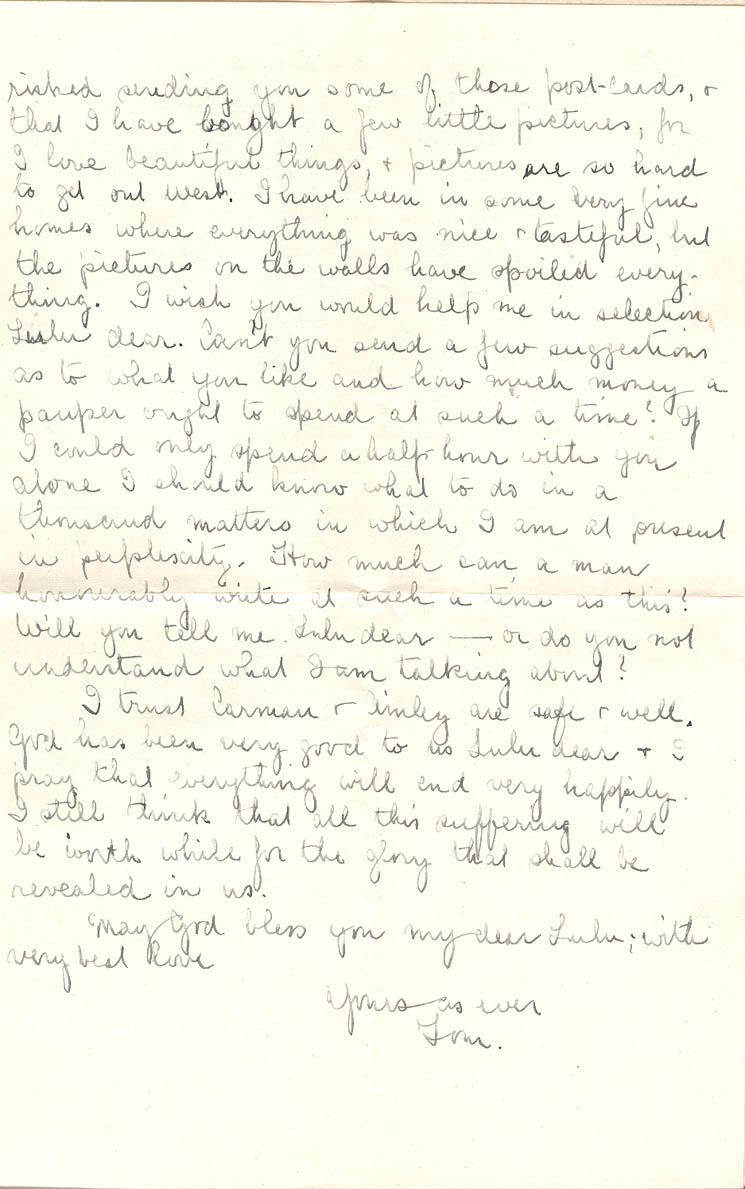 risked sending you some of those post-cards, +
that I have bought a few little pictures, for
I love beautiful things, + pictures are so hard
to get out West. I have been in some very fine
homes where everything was nice + tasteful, but
the pictures on the walls have spoiled every-
thing. I wish you would help me in selection
Lulu dear. Can't you send a few suggestions
as to what you like and how much money a
pauper ought to spend at such a time? If
I could only spend a half-hour with you
alone I should know what to do in a
thousand matters in which I am at present
in perplexity. How much can a man
honourably write at such a time as this?
Will you tell me Lulu dear — or do you not
understand what I am talking about?
I trust Carman + are safe + well.
God has been very good to us Lulu dear + I
pray that everything will end very happily.
I still think that all this suffering will
be worth while for the glory that shall be
revealed in us.
May God bless you my dear Lulu; with
very best love
Yours as ever
Tom.